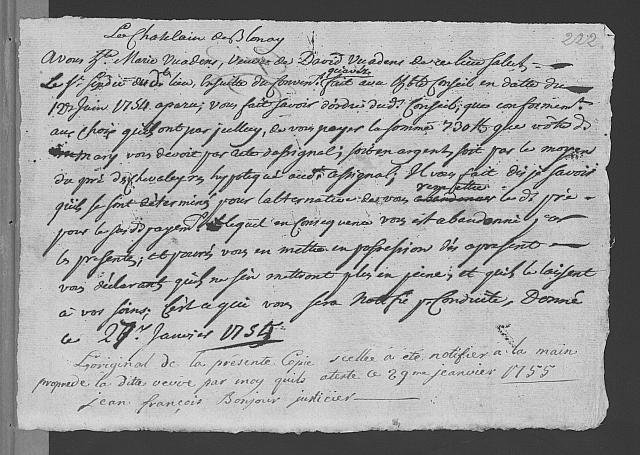 222
Le Chatelain de Blonay
A vous h.te Marie Vuadens, veuve de David Vuadens de ce lieu salut,
Le S.r Sindic de ce lieu, Ensuite du Convent. qu'avez fait avec l'h.ble Conseil en datte du
Juin 1754 aparu; vous fait savoir d'ordre du d.t Conseil; que conformem.t
au Choix qu'ils ont par icelluy, de vous payer la somme 730 ll que votre dt
mary vous devoit par acte d'assignal; soit en argent, soit par le moyen
du pré de Chevaleyres hypotequé aud.t assignal; Il vous fait dis je savoir
qu'ils se sont déterminés pour l'alternative de vous remettre le dt pré
pour le susdit payem.t lequel en consequence vous est abandonné par
les presentes; et pourrés vous en mettre en possession dès apresent
vous déclarant qu'ils ne s'en mettront plus en peine; et qu'ils le laisent
à vos soins; C'est ce qui vous sera Notifié p.r Conduite, Donné
ce 27.e Janvier 1755
L'original de la présente Copie scellée a été notifier a la main
propre de la dite veuve par moy qu'ils ateste ce 29me jeanvier 1755
jean françois Bonjour justicier